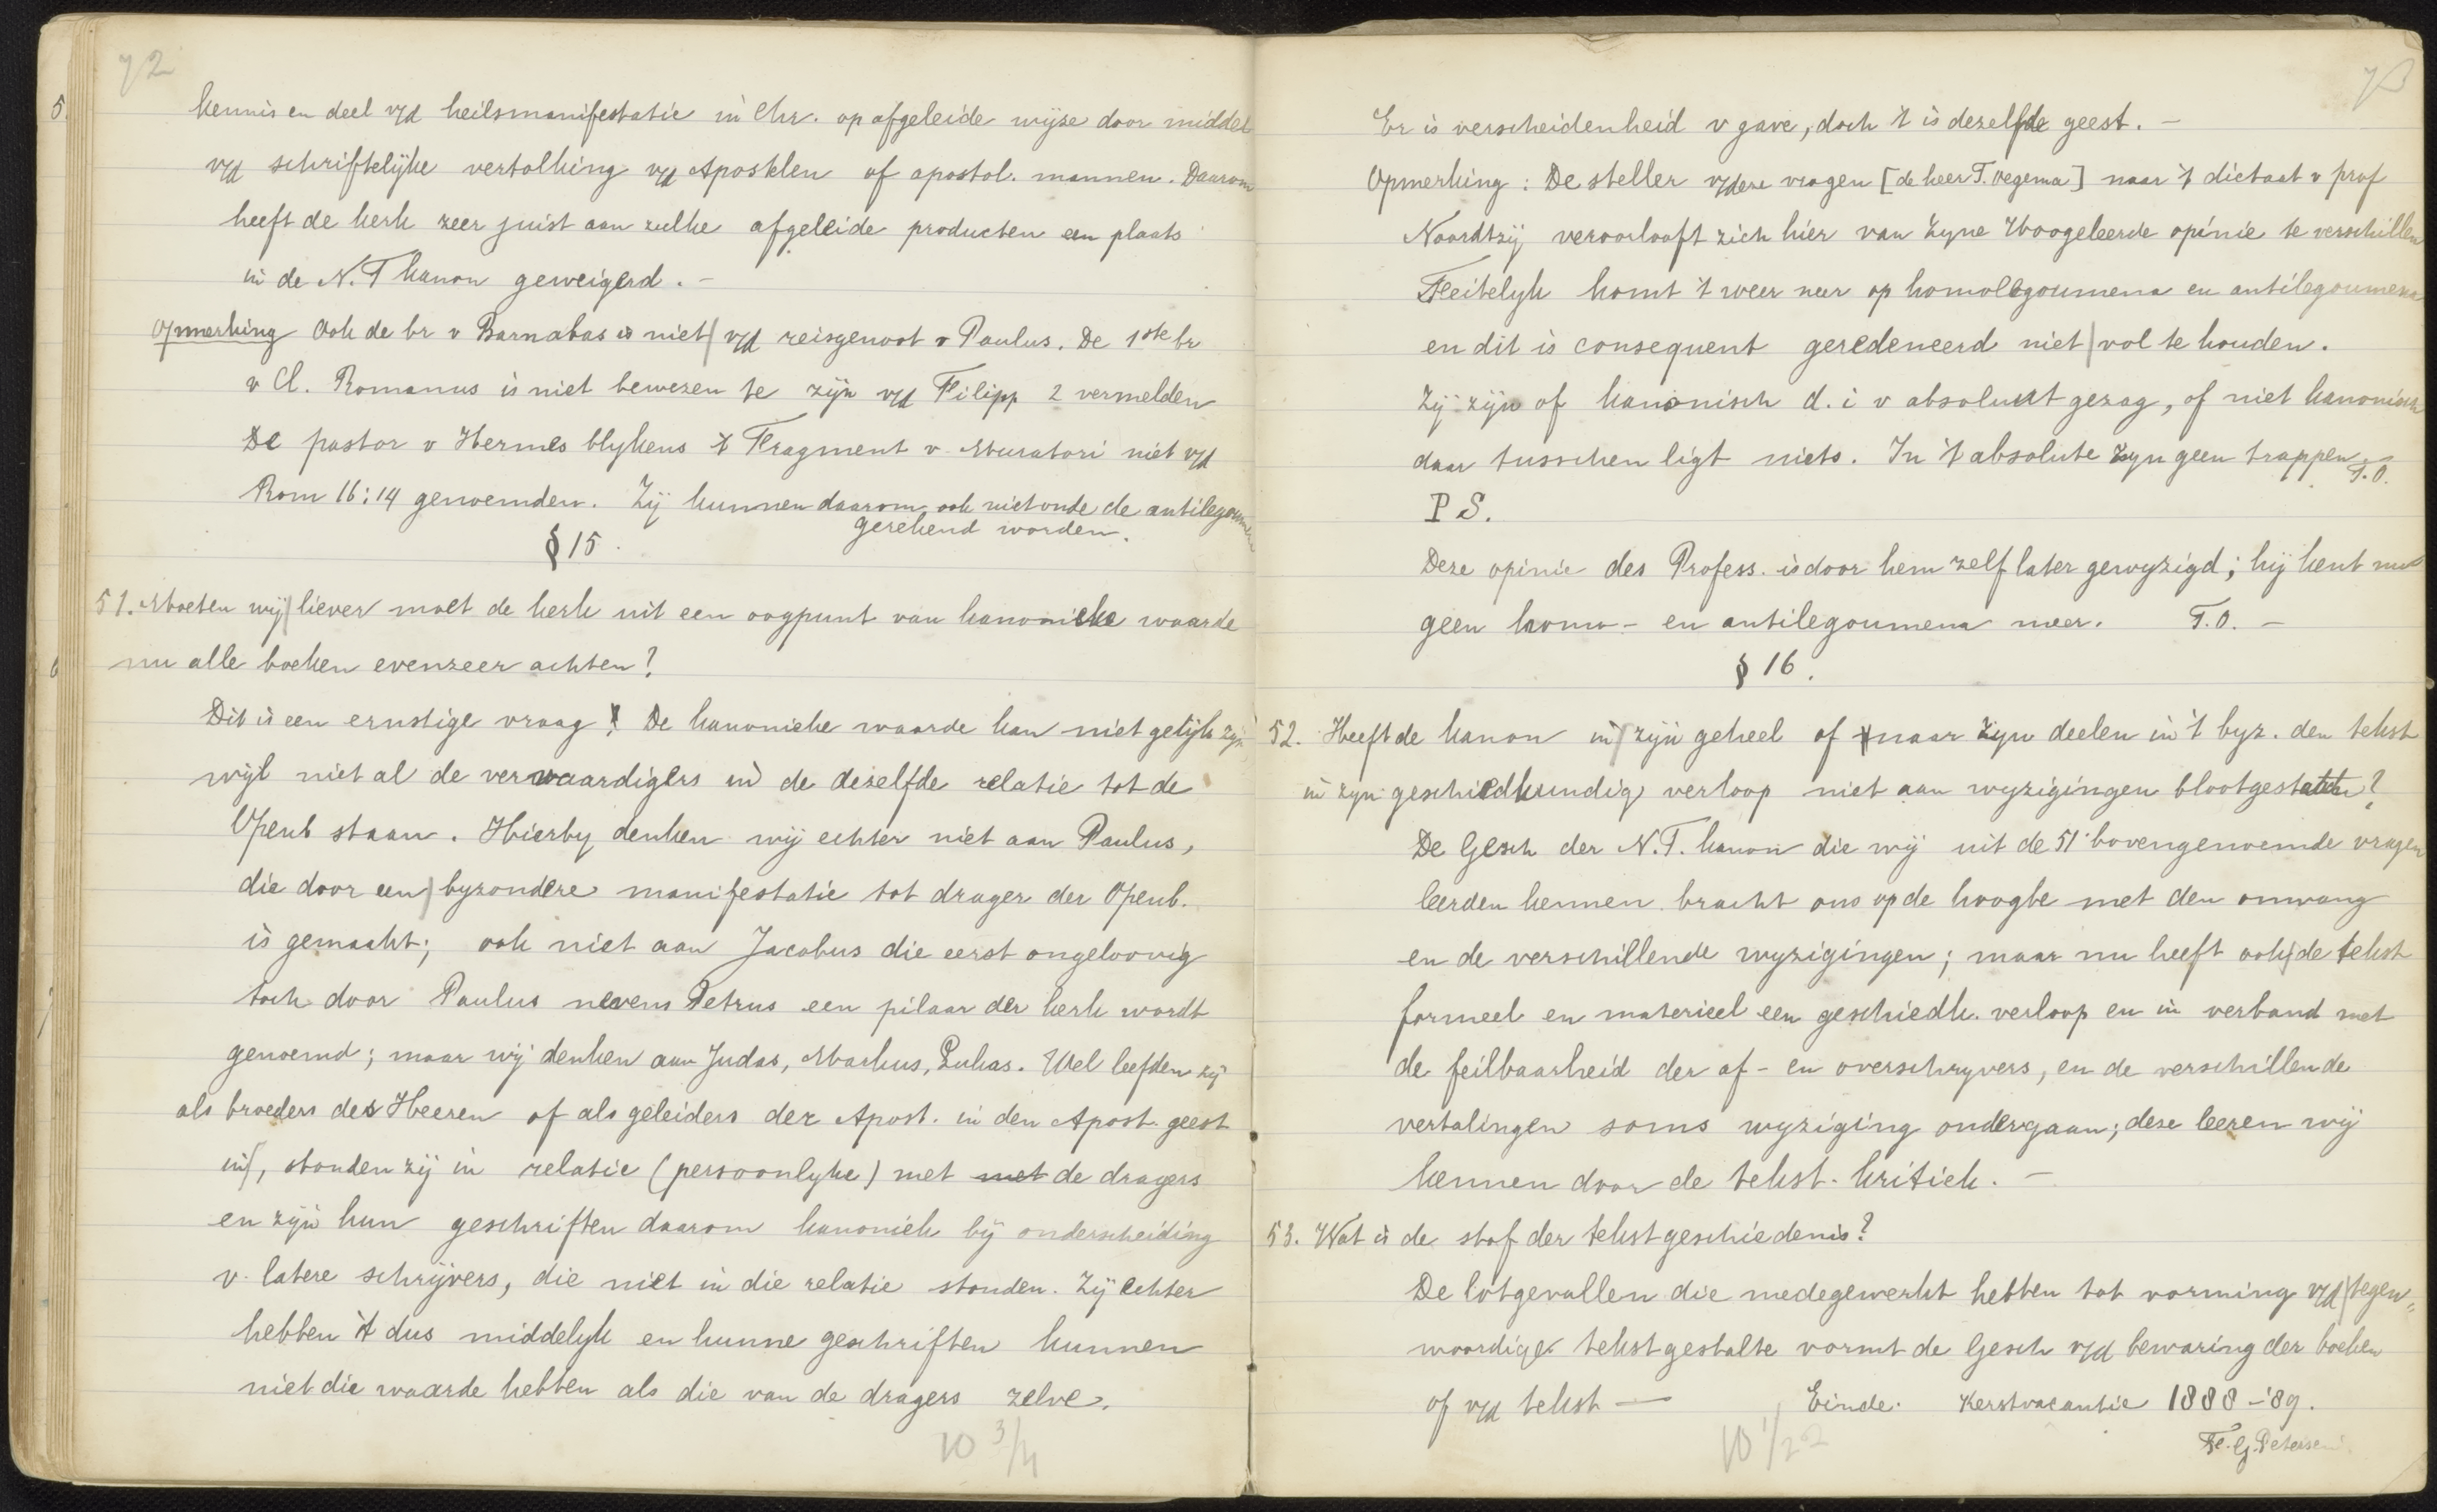 72
kennis en deel v/d heilsmanifestatie in Chr. op afgeleide wijze door middel
v/d schriftelijke vertolking v/d Apostelen of apostol. mannen. Daarom
heeft de kerk zeer juist aan zulke afgeleide producten een plaats
in de N. T kanon geweigerd. -
Opmerking Ook de br v Barnabas is niet v/d reisgenoot v Paulus. De 1ste br
v Cl. Romanus is niet bewezen te zijn v/d Filipp 2 vermelden
De pastor v Hermes blykens 't Fragment v. Muratori niet v/d
Rom 16:14 genoemden. Zij kunnen daarom ook niet onde de antilegoumen
gerekend worden.
§ 15.
51. Moeten wij liever moet de kerk uit een oogpunt van kanonieke waarde
nu alle boeken evenzeer achten?
Dit is een ernstige vraag! De kanonieke waarde kan niet gelijk zijn
wijl niet al de vervaardigers in de dezelfde relatie tot de
Openb staan. Hierby denken wij echter niet aan Paulus,
die door een byzondere manifestatie tot drager der Openb.
is gemaakt; ook niet aan Jacobus die eerst ongeloovig
toch door Paulus nevens Petrus een pilaar der kerk wordt
genoemd; maar wij denken aan Judas, Markus, Lukas. Wel leefden zij
als broeders des Heeren of als geleiders der Apost. in den Apost. geest
in, stonden zij in relatie (persoonlyke) met met de dragers
en zijn hun geschriften daarom kanoniek bij onderscheiding
v. latere schrijvers, die niet in die relatie stonden. Zij echter
hebben 't dus middelyk en hunne geschriften kunnen
niet die waarde hebben als die van de dragers zelve.
10 3/4
73
Er is verscheidenheid v gave, doch 't is dezelfde geest. -
Opmerking: De steller v/deze vragen [de heer T. Oegema] naar 't dictaat v prof
Noordtzij veroorlooft zich hier van Zyne Hoogeleerde opinie te verschillen
Feitelyk komt 't weer neer op homologoumena en antilegoumena
en dit is consequent geredeneerd niet vol te houden.
Zij zijn of kanonisch d. i v absoluut gezag, of niet kanonisch
daar tusschen ligt niets. In 't absolute zyn geen trappen T.O.
P S.
Deze opinie des Profess. is door hem zelf later gewyzigd; hij kent nu
geen homo- en antilegoumena meer. T.O. -
§ 16.
52. Heeft de kanon in zijn geheel of naar zyn deelen in 't byz. den tekst
in zyn geschiedkundig verloop niet aan wyzigingen blootgestaan?
De Gesch der N. T. kanon die wij uit de 51 bovengenoemde vragen
leerden kennen bracht ons op de hoogte met den omvang
en de verschillende wyzigingen; maar nu heeft ook de tekst
formeel en materieel een geschiedk. verloop en in verband met
de feilbaarheid der af- en overschryvers, en de verschillende
vertalingen soms wyziging ondergaan; deze leeren wij
kennen door de tekst-kritiek. -
53. Wat is de stof der tekstgeschiedenis?
De lotgevallen die medegewerkt hebben tot vorming v/d tegen„
woordige tekstgestalte vormt de Gesch v/d bewaring der boeken
of v/d tekst — Einde. Kerstvacantie 1888-'89.
Fe. G. Petersen.
10 1/22